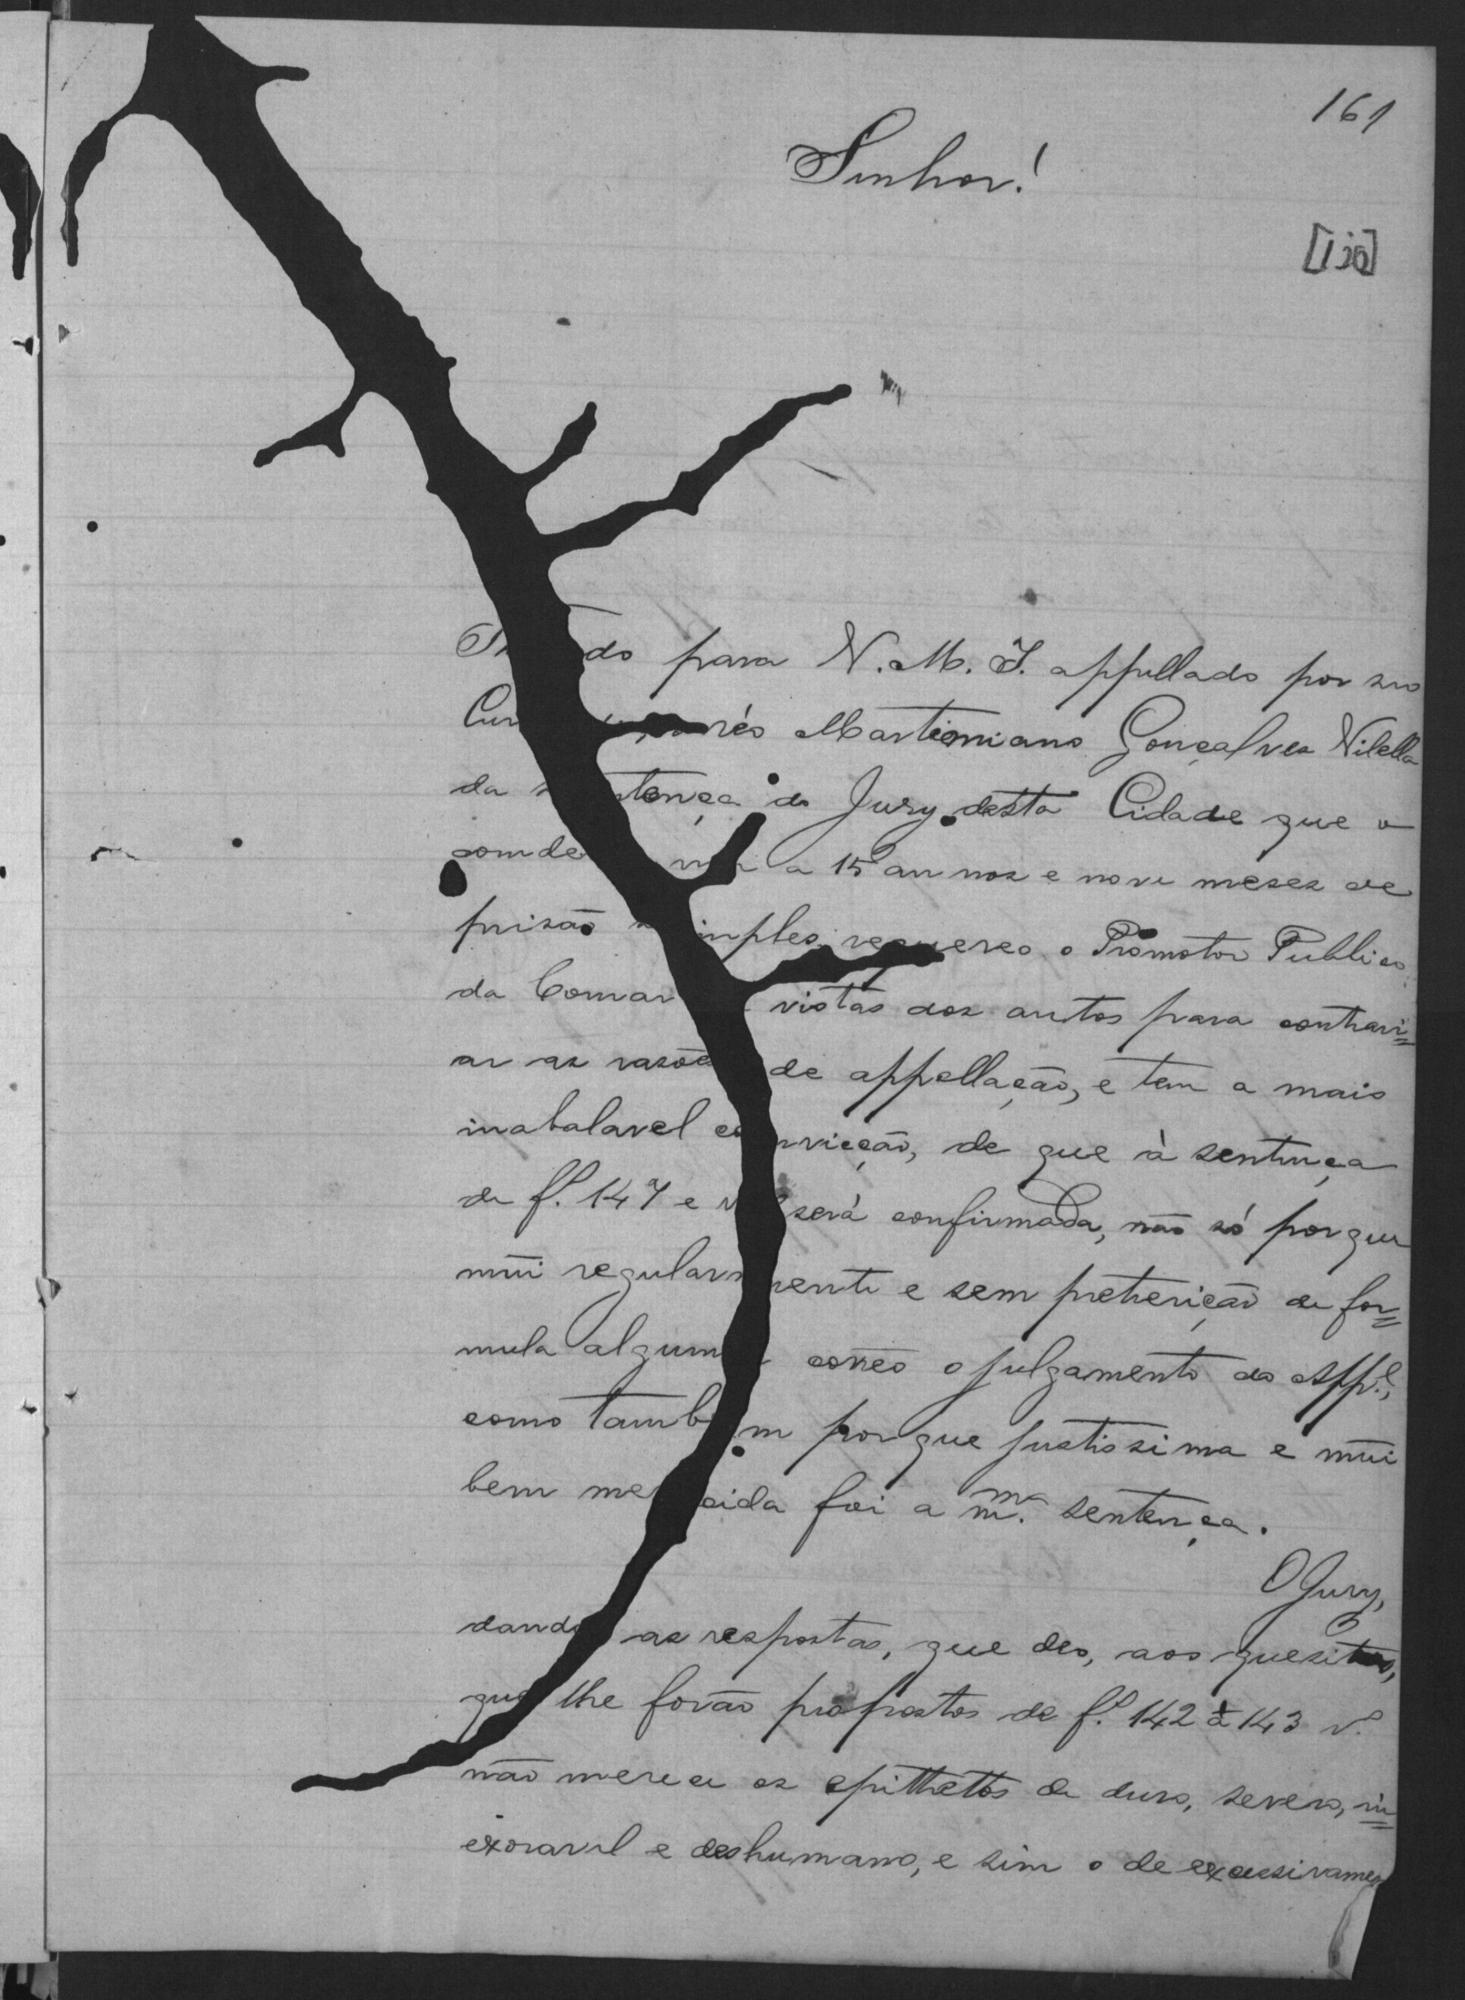 161
Senhor!
do para V. M. I. appellado por seo
réo Martiniano Gonçalves Vilella
da sentença do Jury desta Cidade que o
a 15 annos e nove meses de
prisão simples, requereo o Promotor Publico
da vistas dos autos para contrari=
ar as rasões de appellação, e tem a mais
inabalavel convicção, de que à sentença
de f.ˢ 147 e será confirmada, não só porque
mũi regularmente e sem preterição de for=
mula alguma correo o julgamento do App.º,
como tambem porque justissima e mũi
bem merecida foi a m.ᵐᵃ sentença.
O Jury,
dando as respostas, que deo, aos quesitos,
que lhe forão propostos de f.ˢ 142 à 143 v.º
não merece os epithetos de duro, severo, in=
exoravel e deshumano, e sim o de excessivamen